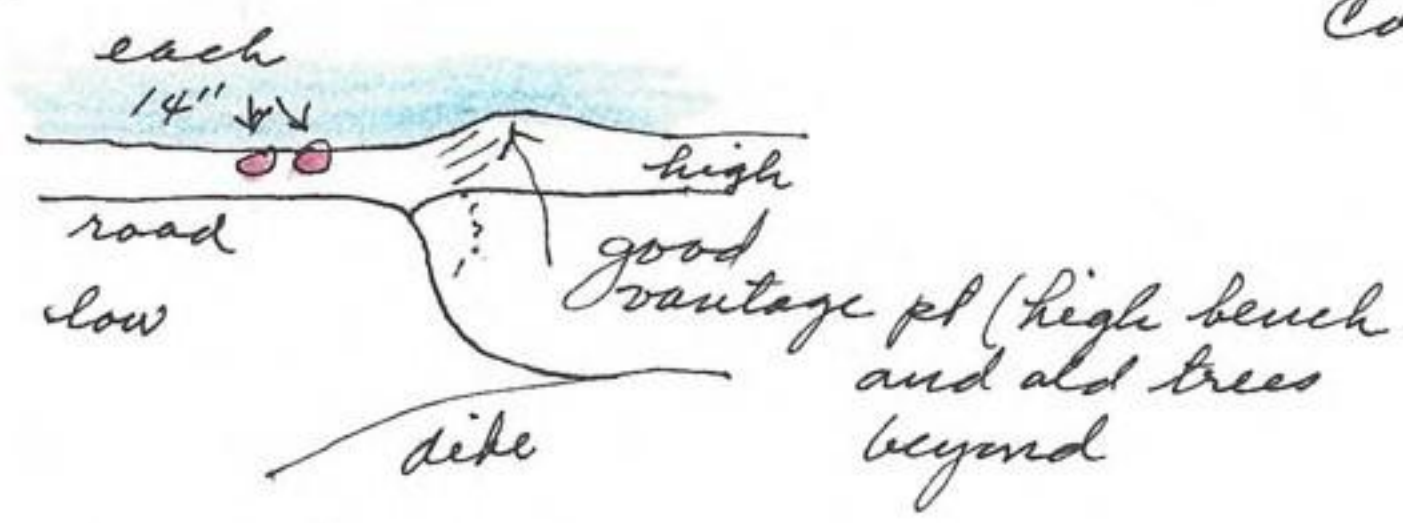 each
14"
high
road
good
low
vantage pt (high bench
and old trees
beyond
dike
Co